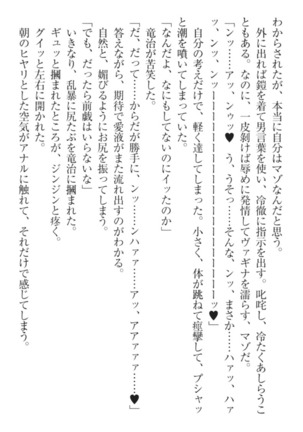 わからされたが、本当に自分はマゾなんだと思う。
　外に出れば鎧を着て男言葉を使い、冷徹に指示を出す。叱咤し、冷たくあしらうこ
ともある。なのに、一皮剥けば辱めに発情してヴァギナを濡らす、マゾだ。
「ンッ…アッ、ンゥッ♥　う、うそっ……そんな、ンッ、まさか……ハァッ、ハァ
ッ、ンッ、ンッーーーーーーーーーーーーー♥」
　自分の考えだけで、軽く達してしまった。小さく、体が跳ねて痙攣して、ブシャッ
と潮を噴いてしまっていた。
「なんだよ、なにもしてないのにイッたのか」
　竜治が苦笑した。
「だ、だって……からだが勝手に、ンッ……ンハァァ……アッ、アアァァ……♥」
　答えながら、期待で愛液がまた流れ出すのがわかる。
　自然と、媚びるようにお尻を振ってしまう。
「でも、だったら前戯はいらないな」
　いきなり、乱暴に尻たぶを竜治に摑まれた。
　ギュッと摑まれたところが、ジンジンと疼く。
　グイッと左右に開かれた。
　朝のヒヤリとした空気がアナルに触れて、それだけで感じてしまう。